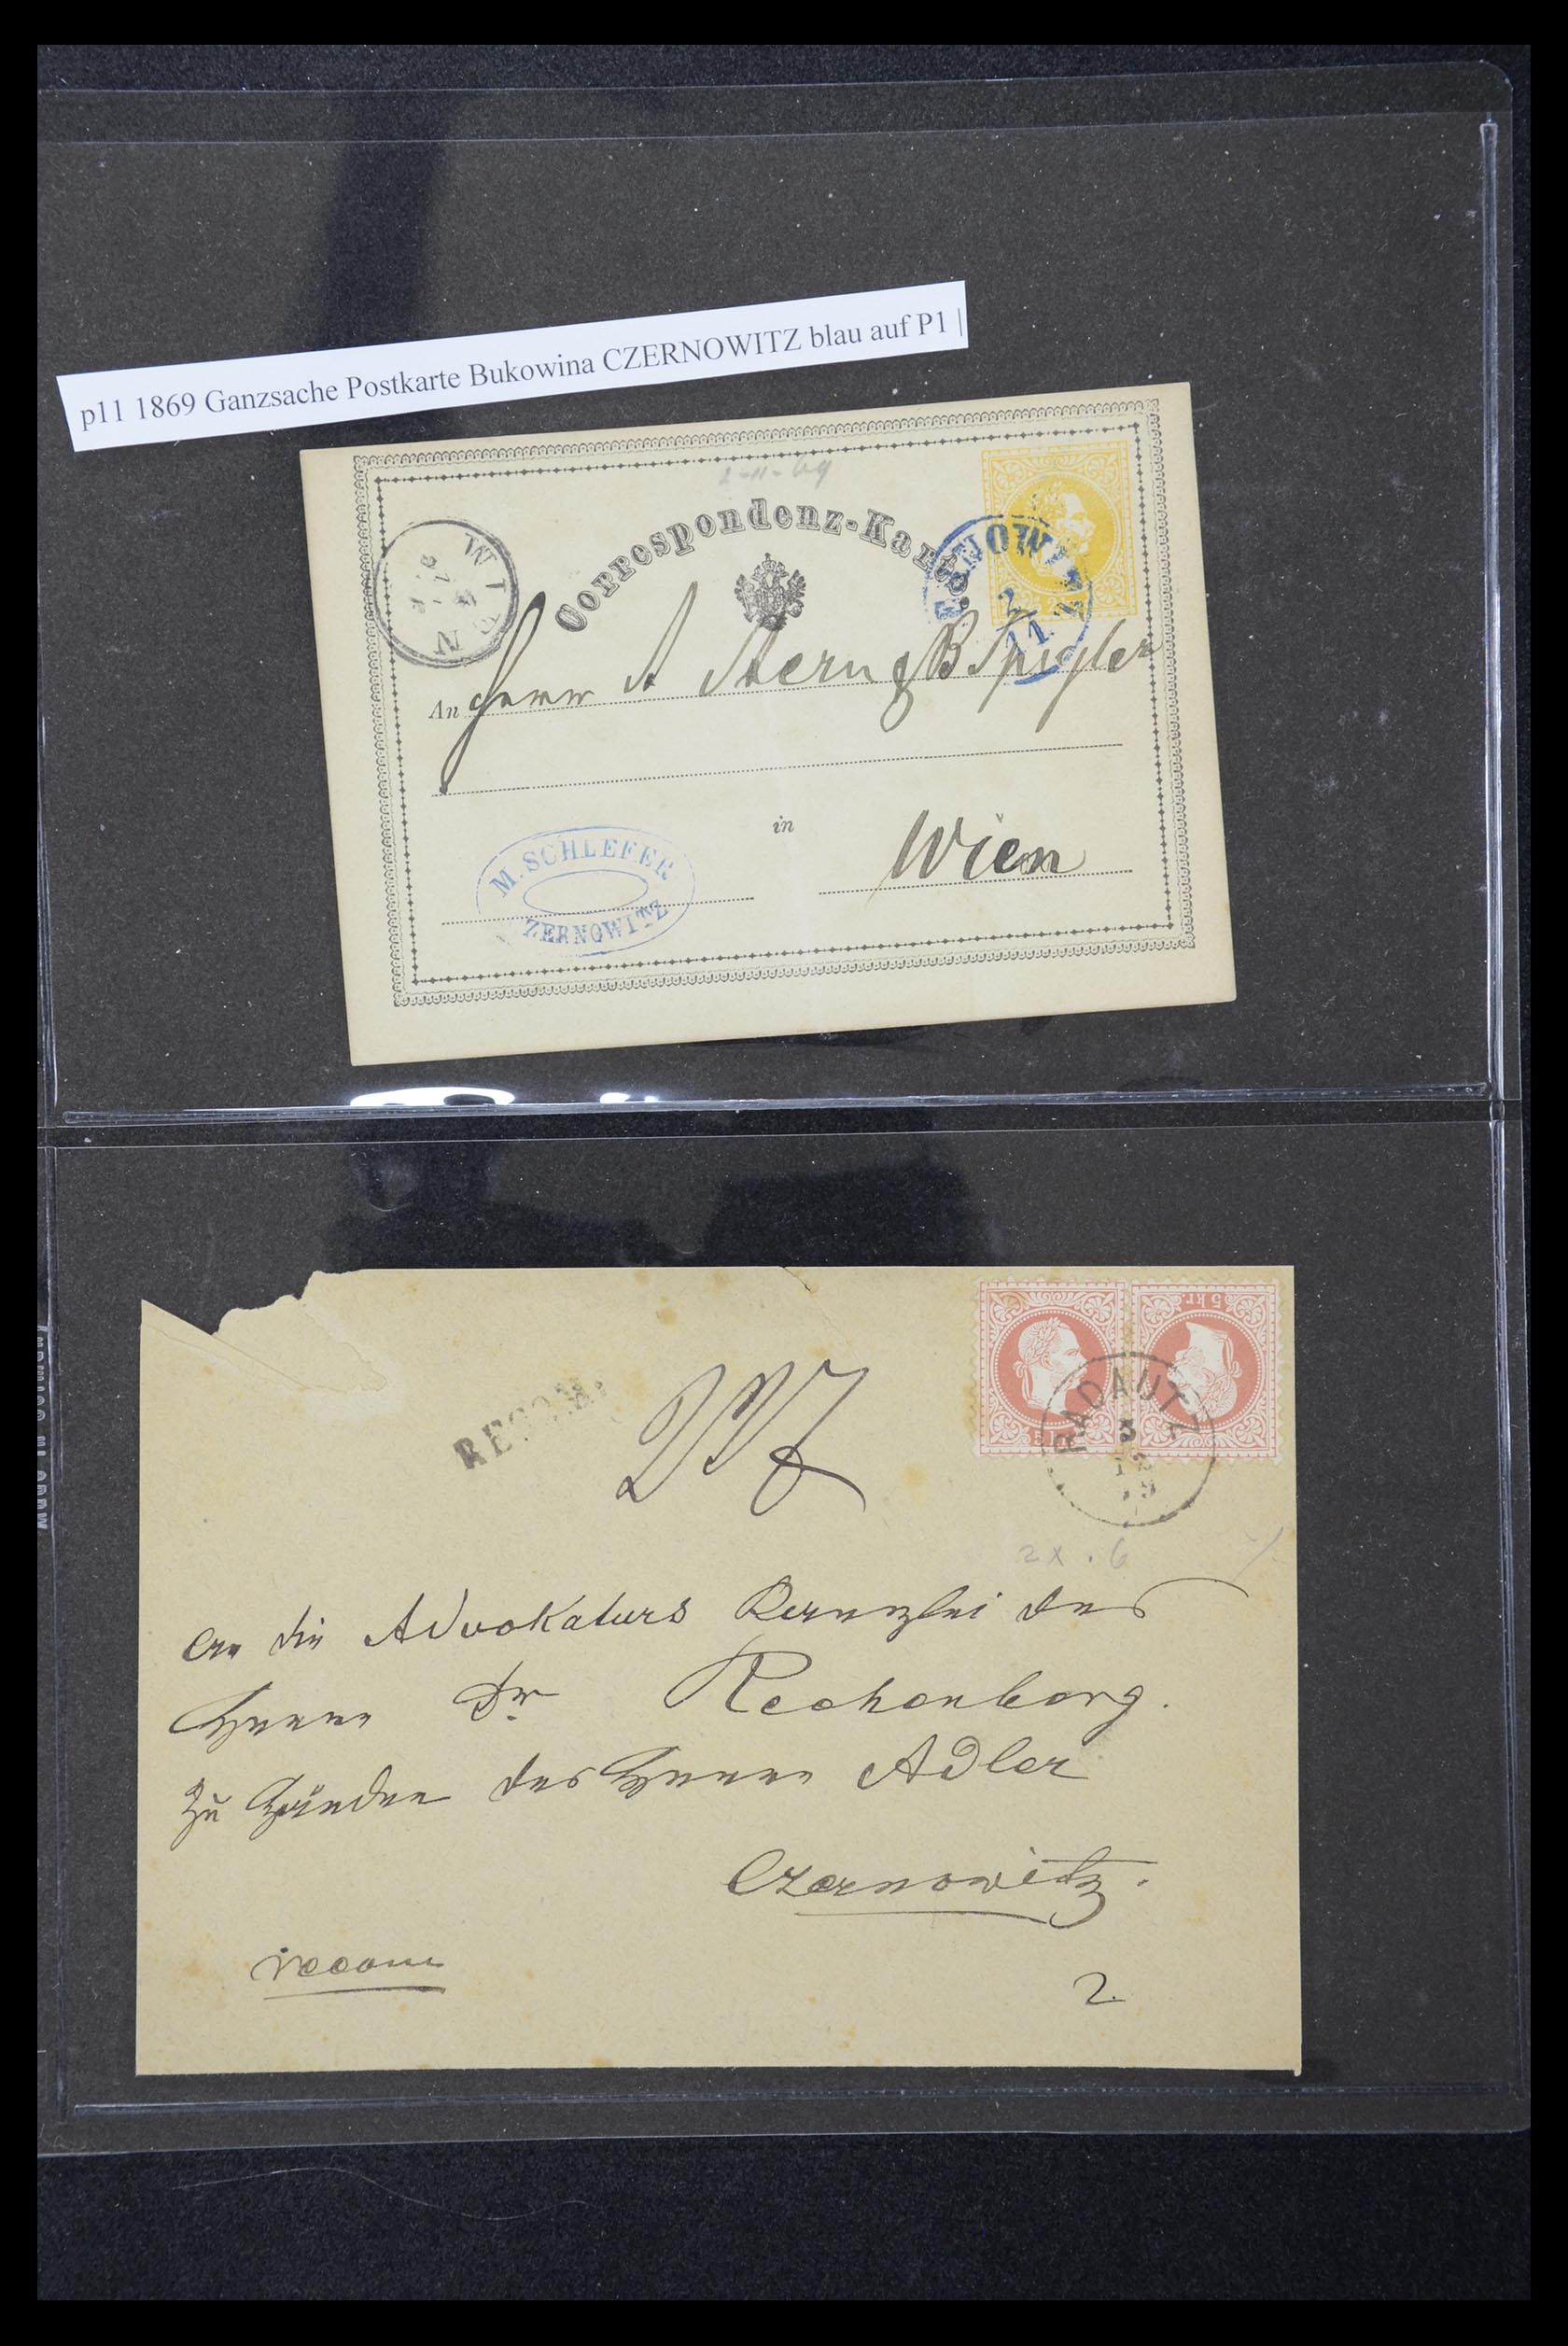 p11 1869 Ganzsache Postkarte Bukowina CZERNOWITZ blau auf P1 |
2-11-69
Correspondenz-Karte.
WIEN
2/11
An Herrn A Stern & B Spigler
in Wien
M. SCHLEFER
CZERNOWITZ
5 kr
RECOM.
RADAUTZ
3
2 x . 6
An die Advokaturs Kanzlei des
Herrn Dr Rechenberg.
Zu Händen des Herrn Adler
Czernowitz.
recom
2.